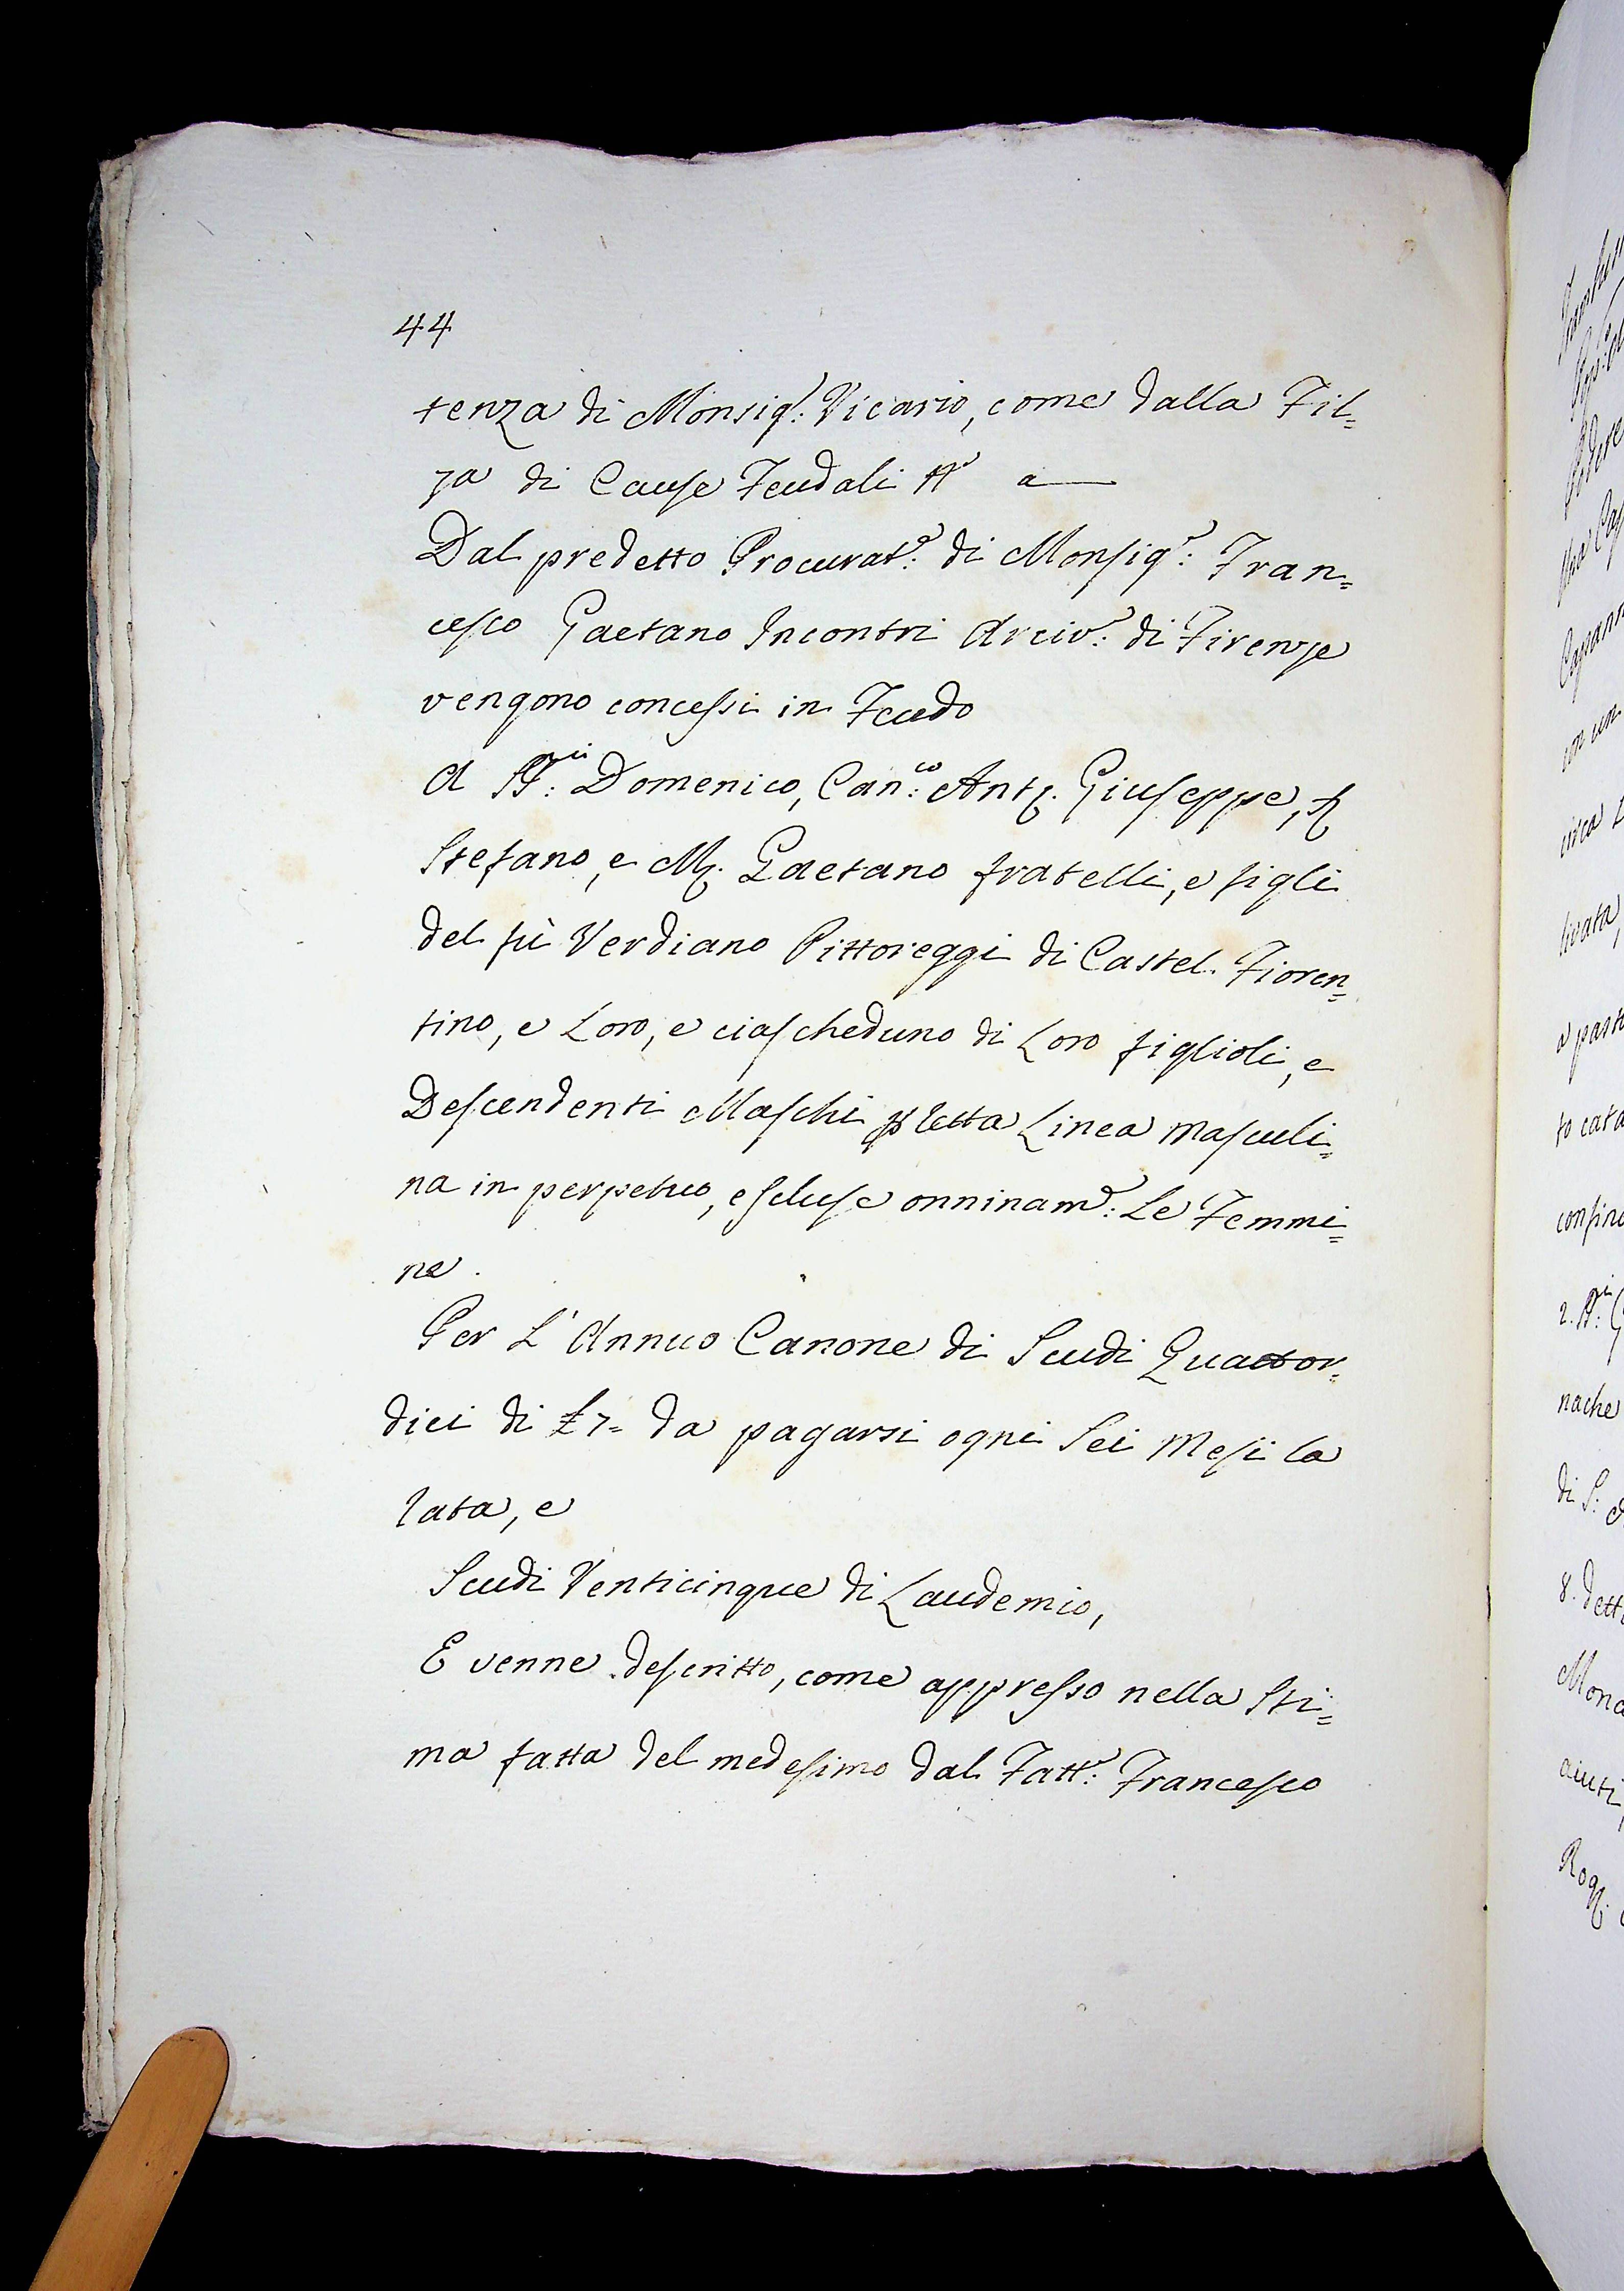 44
tenza di Monsig.r Vicario, come dalla Fil=
za di Cause Feudali N.o a
Dal predetto Procurat.e di Monsig.r Fran=
cesco Gaetano Incontri Arciv.o di Firenze
vengono concessi in Feudo
A SS.ri Domenico, Can.co Ant. Giuseppe,
Stefano, e M. Gaetano fratelli, e figli
del fù Verdiano Pittoreggi di Castel Fioren=
tino, e Loro, e ciascheduno di Loro figlioli, e
Descendenti Maschi p retta Linea masculi=
na in perpetuo, escluse onninam.e Le Femmi=
ne.
Per L'Annuo Canone di Scudi Quattor=
dici di £ 7= da pagarsi ogni Sei Mesi la
rata, e
Scudi Venticinque di Laudemio,
E venne descritto, come appresso nella Sti=
ma fatta del medesimo dal Fatt.e Francesco
circa
livata,
to cata
confino
nache
8. dett
aiuti,